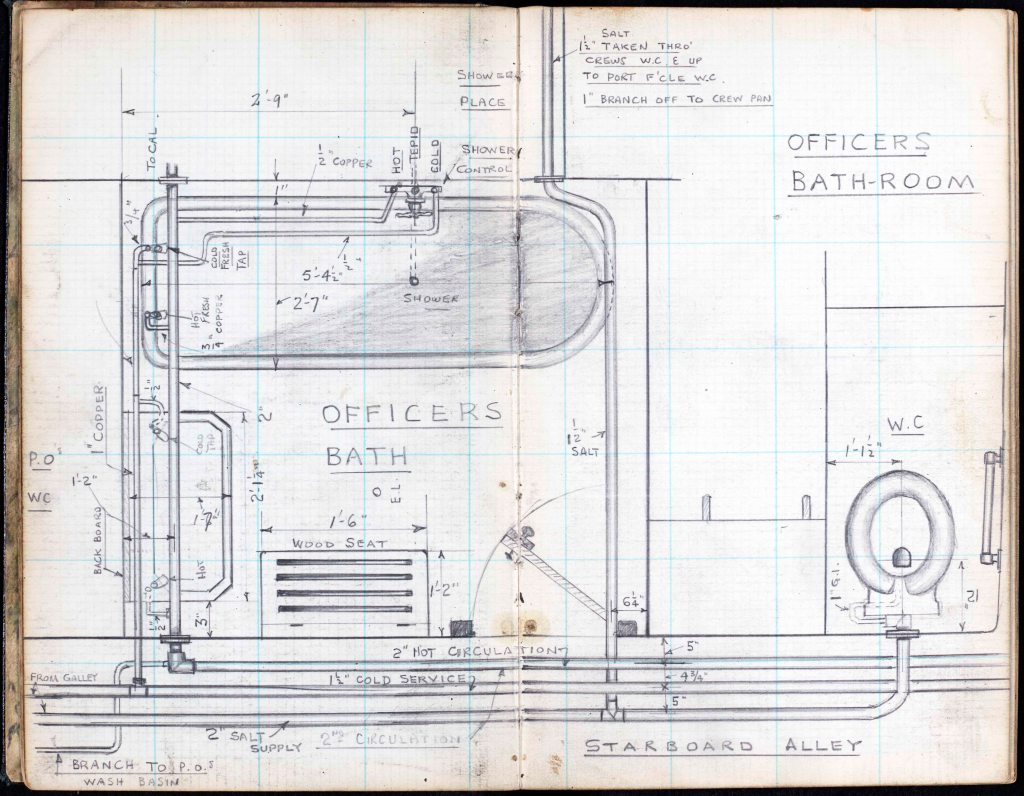 SALT
1½" TAKEN THRO'
CREWS W.C & UP
TO PORT F'CLE W.C.
1" BRANCH OFF TO CREW PAN
SHOWER
PLACE
2'-9"
OFFICERS
BATH-ROOM
TO CAL.
½" COPPER
1"
HOT
TEPID
COLD
SHOWER
CONTROL
3/4"
COLD
FRESH
TAP
5'-4½"
2'-7"
SHOWER
HOT
FRESH
¾ COPPER
½"
2"
OFFICERS
BATH
E.L.
1½"
SALT
W.C
1'-1½"
1" COPPER
P.Os
WC
1'-2"
COLD
TAP
2'-1¼"
1'-7"
BACK BOARD
HOT
1'-6"
WOOD SEAT
1'-2"
½"
3"
6¼"
1" G.I.
12"
2" HOT CIRCULATION
5"
FROM GALLEY
1½" COLD SERVICE
4¾"
5"
2" SALT
SUPPLY
2ND CIRCULATION
STARBOARD ALLEY
BRANCH TO P.Os
WASH BASIN